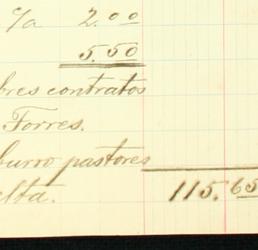 c/a 2.00
5.50
bres contratos
Torres.
burro pastores
elta. 115.65